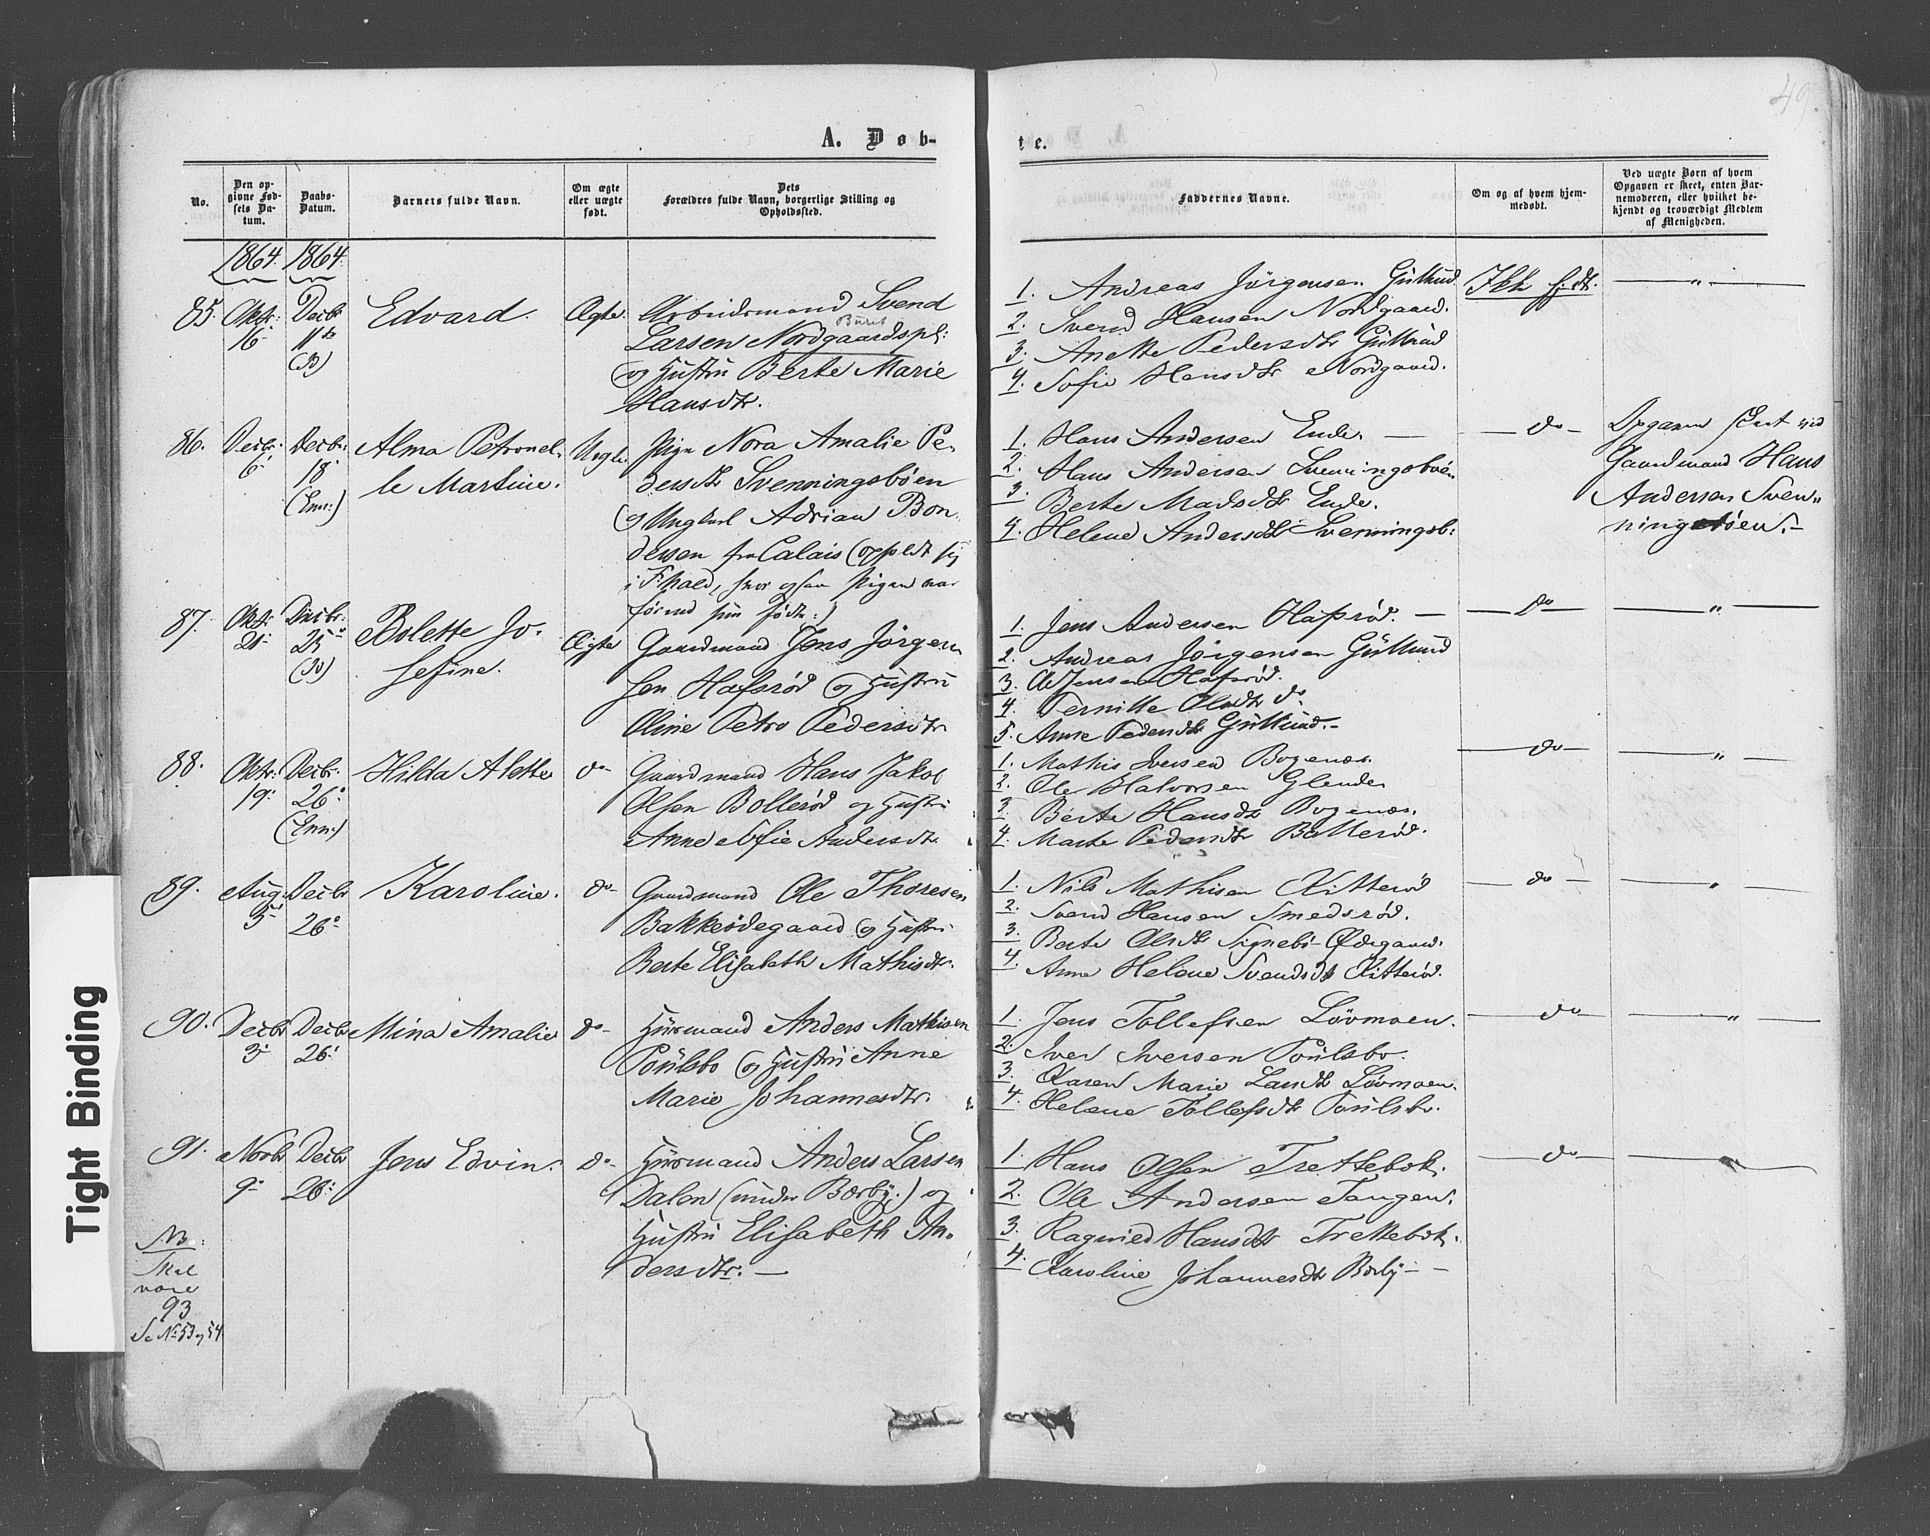 49.
A. Døb-
te.
No.
Den op-
givne Fød-
sels Da-
tum.
Daabs-
Datum.
Barnets fulde Navn.
Om ægte
eller uægte
født.
Dets
Forældres fulde Navn, borgerlige Stilling og
Opholdssted.
Faddernes Navne.
Om og af hvem hjem-
medøbt.
Ved uægte Børn af hvem
Opgaven er skeet, enten Bar-
nemoderen, eller hvilket be-
kjendt og troværdigt Medlem
af Menigheden.
1864. 1864.
85. Oktr: 16 Decbr 11te
Edvard.
Ægte.
Arbeidsmand Svend
Larsen Nordgaardspl:
og Hustru Berte Marie
Hansdtr.
1. Andreas Jörgensen Güllund
2. Svend Hansen Nordgaard.
3. Anette Pedersdtr Güllund
4. Sofie Hansdtr Nordgaard.
Ikk hjdt. — " —
86. Decbr: 6 Decbr: 18 (Enn:)
Alma Petronel-
le Martine.
Uegte.
Pige Nora Amalie Pe-
dersdtr Svenningsbøen
og Ungkarl Adrian Bon-
dersen fra Calais (opholdt sig
i Fr.hald, hvor ogsaa Pigen var
før ved sin Føds:)
1. Hans Andersen Ende. —
2. Hans Andersen Svenningsbøe
3. Berte Madsdtr Ende.
4. Helene Andersdtr Svenningsb:
— do —
Opgaven skeet ved
Gaardmand Hans
Andersen Sven-
ningsbøen. —
87. Oktr 21 Decbr. 25
Bolette Jo-
sefine.
Ægte
Gaardmand Jens Jörgen-
sen Hafsrød og Hustru
Oline Petro Pedersdtr.
1. Jens Andersen Hafsrød. —
2. Andreas Jörgensen Güllund
3. Jensen Hafsrød.
4. Pernille Olsdtr do
5. Anne Pedersdtr Güllund. —
— do — " —
88. Oktr: 19 Decbr. 26 (Enn:)
Hilda Alette
do
Gaardmand Hans Jakob
Olsen Bollerød og Hustru
Anne Sofie Andersdtr.
1. Mathis Iversen Bogenæs.
2. Ole Halvorsen Glende.
3. Berte Hansdtr Bogenæs.
4. Marte Pedersdtr Bollerød.
— do — " —
89. Aug. 5 Decbr 26
Karoline.
do
Gaardmand Ole Thoresen
Bakkeødegaard og Hustru
Berte Elisabeth Mathisdtr.
1. Nils Mathisen Kitterød
2. Svend Hansen Smedsrød.
3. Berte Olsdtr Signebø-Ødegaard.
4. Anne Helene Svendsdtr Kitterød.
— do — " —
90. Decbr 3 Decbr 26
Mina Amalie
do
Husmand Anders Mathisen
Poulsbo og Hustru Anne
Marie Johannesdtr.
1. Jens Tollefsen Lövmoen.
2. Iver Iversen Poulsbo.
3. Karen Marie Larsdtr Lövmoen.
4. Helene Tollefsdtr Poulsbo.
— do — " —
91. Novbr 9 Decbr 26
Jens Edvin.
do
Husmand Anders Larsen
Dalen (under Bærby.) og
Hustru Elisabeth An-
dersdtr. —
1. Hans Olsen Trettebøk.
2. Ole Andersen Tangen.
3. Ragnild Hansdtr Trettebøk.
4. Karoline Johannesdtr Bærby —
— do — " —
NB.
Skal
være
93
Se No 53 og 54
Tight Binding